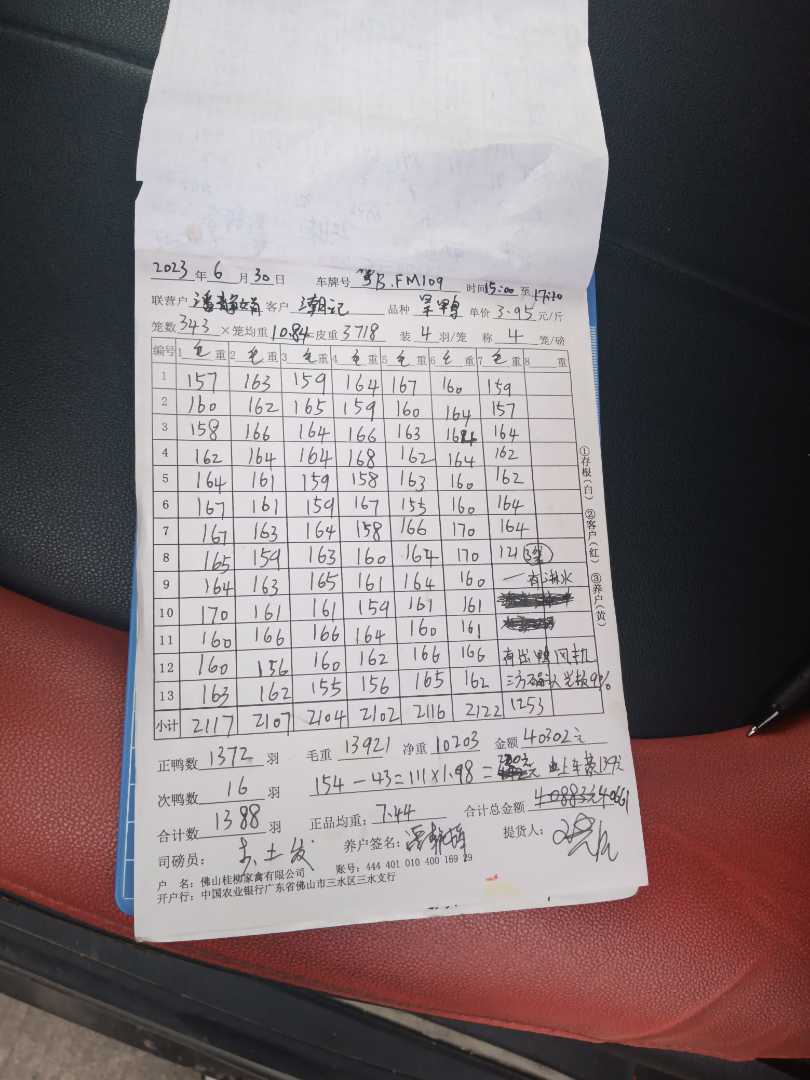 2023年 6月30日 车牌号 粤B.FM109 时间15:00至17:20
联营户 客户 潮记 品种 单价 3.95元/斤
笼数343×笼均重10.84=皮重3718 装 4 羽/笼 称 4 笼/磅
编号 1 毛重 2 毛重 3 毛重 4 毛重 5 毛重 6 毛重 7 毛重 8 重
1 157 163 159 164 167 160 159
2 160 162 165 159 160 164 157
3 158 166 164 166 163 164 164
4 162 164 164 168 162 164 162
5 164 161 159 158 163 160 162
6 167 161 159 167 155 160 164
7 167 163 164 158 166 170 164
8 165 159 163 160 164 170 121 3笼
9 164 163 165 161 164 160 一有淋水
10 170 161 161 159 161 161
11 160 166 166 164 160 161
12 160 156 160 162 166 166 有出鸭
13 163 162 155 156 165 162 三方确认 9%
小计 2117 2107 2104 2102 2116 2122 1253
正鸭数 1372 羽 毛重 13921 净重 10203 金额 40302元
次鸭数 16 羽 154-43=111×1.98=220元
合计数 1388 羽 正品均重: 7.44 合计总金额 40883元 40661
司磅员: 养户签名: 提货人:
户 名: 佛山桂柳家禽有限公司 账号: 444 401 010 400 169 29
开户行: 中国农业银行广东省佛山市三水区三水支行
①存根(白) ②客户(红) ③养户(黄)